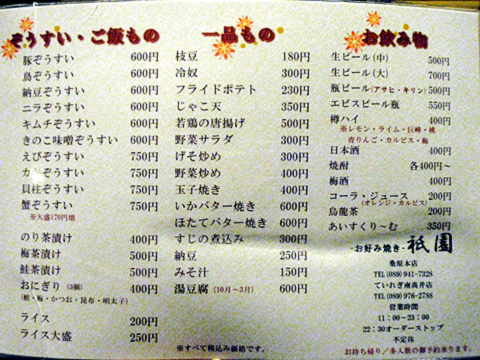 ぞうすい・ご飯もの
豚ぞうすい 600円
鳥ぞうすい 600円
納豆ぞうすい 600円
ニラぞうすい 600円
キムチぞうすい 600円
きのこ味噌ぞうすい 600円
えびぞうすい 750円
かきぞうすい 750円
貝柱ぞうすい 750円
蟹ぞうすい 750円
※大盛170円増
のり茶漬け 400円
梅茶漬け 500円
鮭茶漬け 500円
おにぎり(3個) 400円
(鮭・梅・かつお・昆布・明太子)
ライス 200円
ライス大盛 250円
一品もの
枝豆 180円
冷奴 300円
フライドポテト 230円
じゃこ天 350円
若鶏の唐揚げ 500円
野菜サラダ 300円
げそ炒め 300円
野菜炒め 400円
玉子焼き 400円
いかバター焼き 600円
ほたてバター焼き 600円
すじの煮込み 300円
納豆 250円
みそ汁 150円
湯豆腐(10月〜3月) 600円
※すべて税込み価格です。
お飲み物
生ビール(中) 500円
生ビール(大) 700円
瓶ビール(アサヒ・キリン) 500円
エビスビール瓶 550円
樽ハイ 400円
※レモン・ライム・巨峰・桃
青りんご・カルピス・梅
日本酒 400円
焼酎 各400円〜
梅酒 400円
コーラ・ジュース 200円
(オレンジ・カルピス)
烏龍茶 200円
あいすくり〜む 350円
-お好み焼き- 祇園
桑原本店
TEL(089)941-7328
ていれぎ南高井店
TEL(089)976-2788
営業時間
11:00〜23:00
22:30オーダーストップ
不定休
お持ち帰り/多人数の御予約承ります。